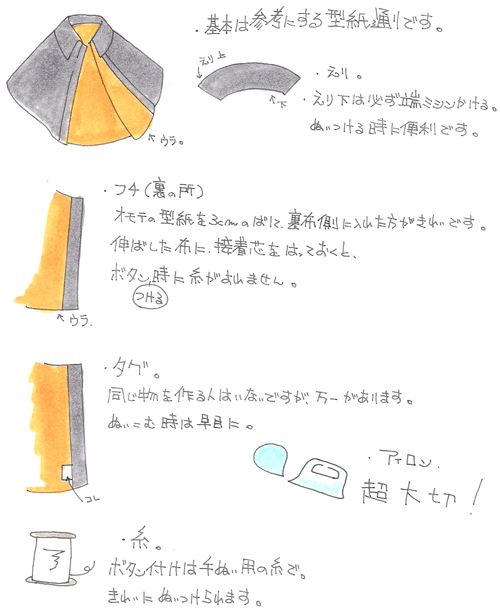 ・基本は参考にする型紙通りです。
えり上
・えり。
・えり下は必ず端ミシンかける。
ぬいつける時に便利です。
下
ウラ。
・フチ(裏の所)
オモテの型紙を3cmのばして、裏布側に入れた方がきれいです。
伸ばした布に、接着芯をはっておくと、
ボタンつける時に糸がよれません。
ウラ.
・タグ。
同じ物を作る人はいないですが、万一があります。
ぬいこむ時は早目に。
コレ
・アイロン.
超大切!
・糸。
ボタン付けは手ぬい用の糸で。
きれいにぬいつけられます。